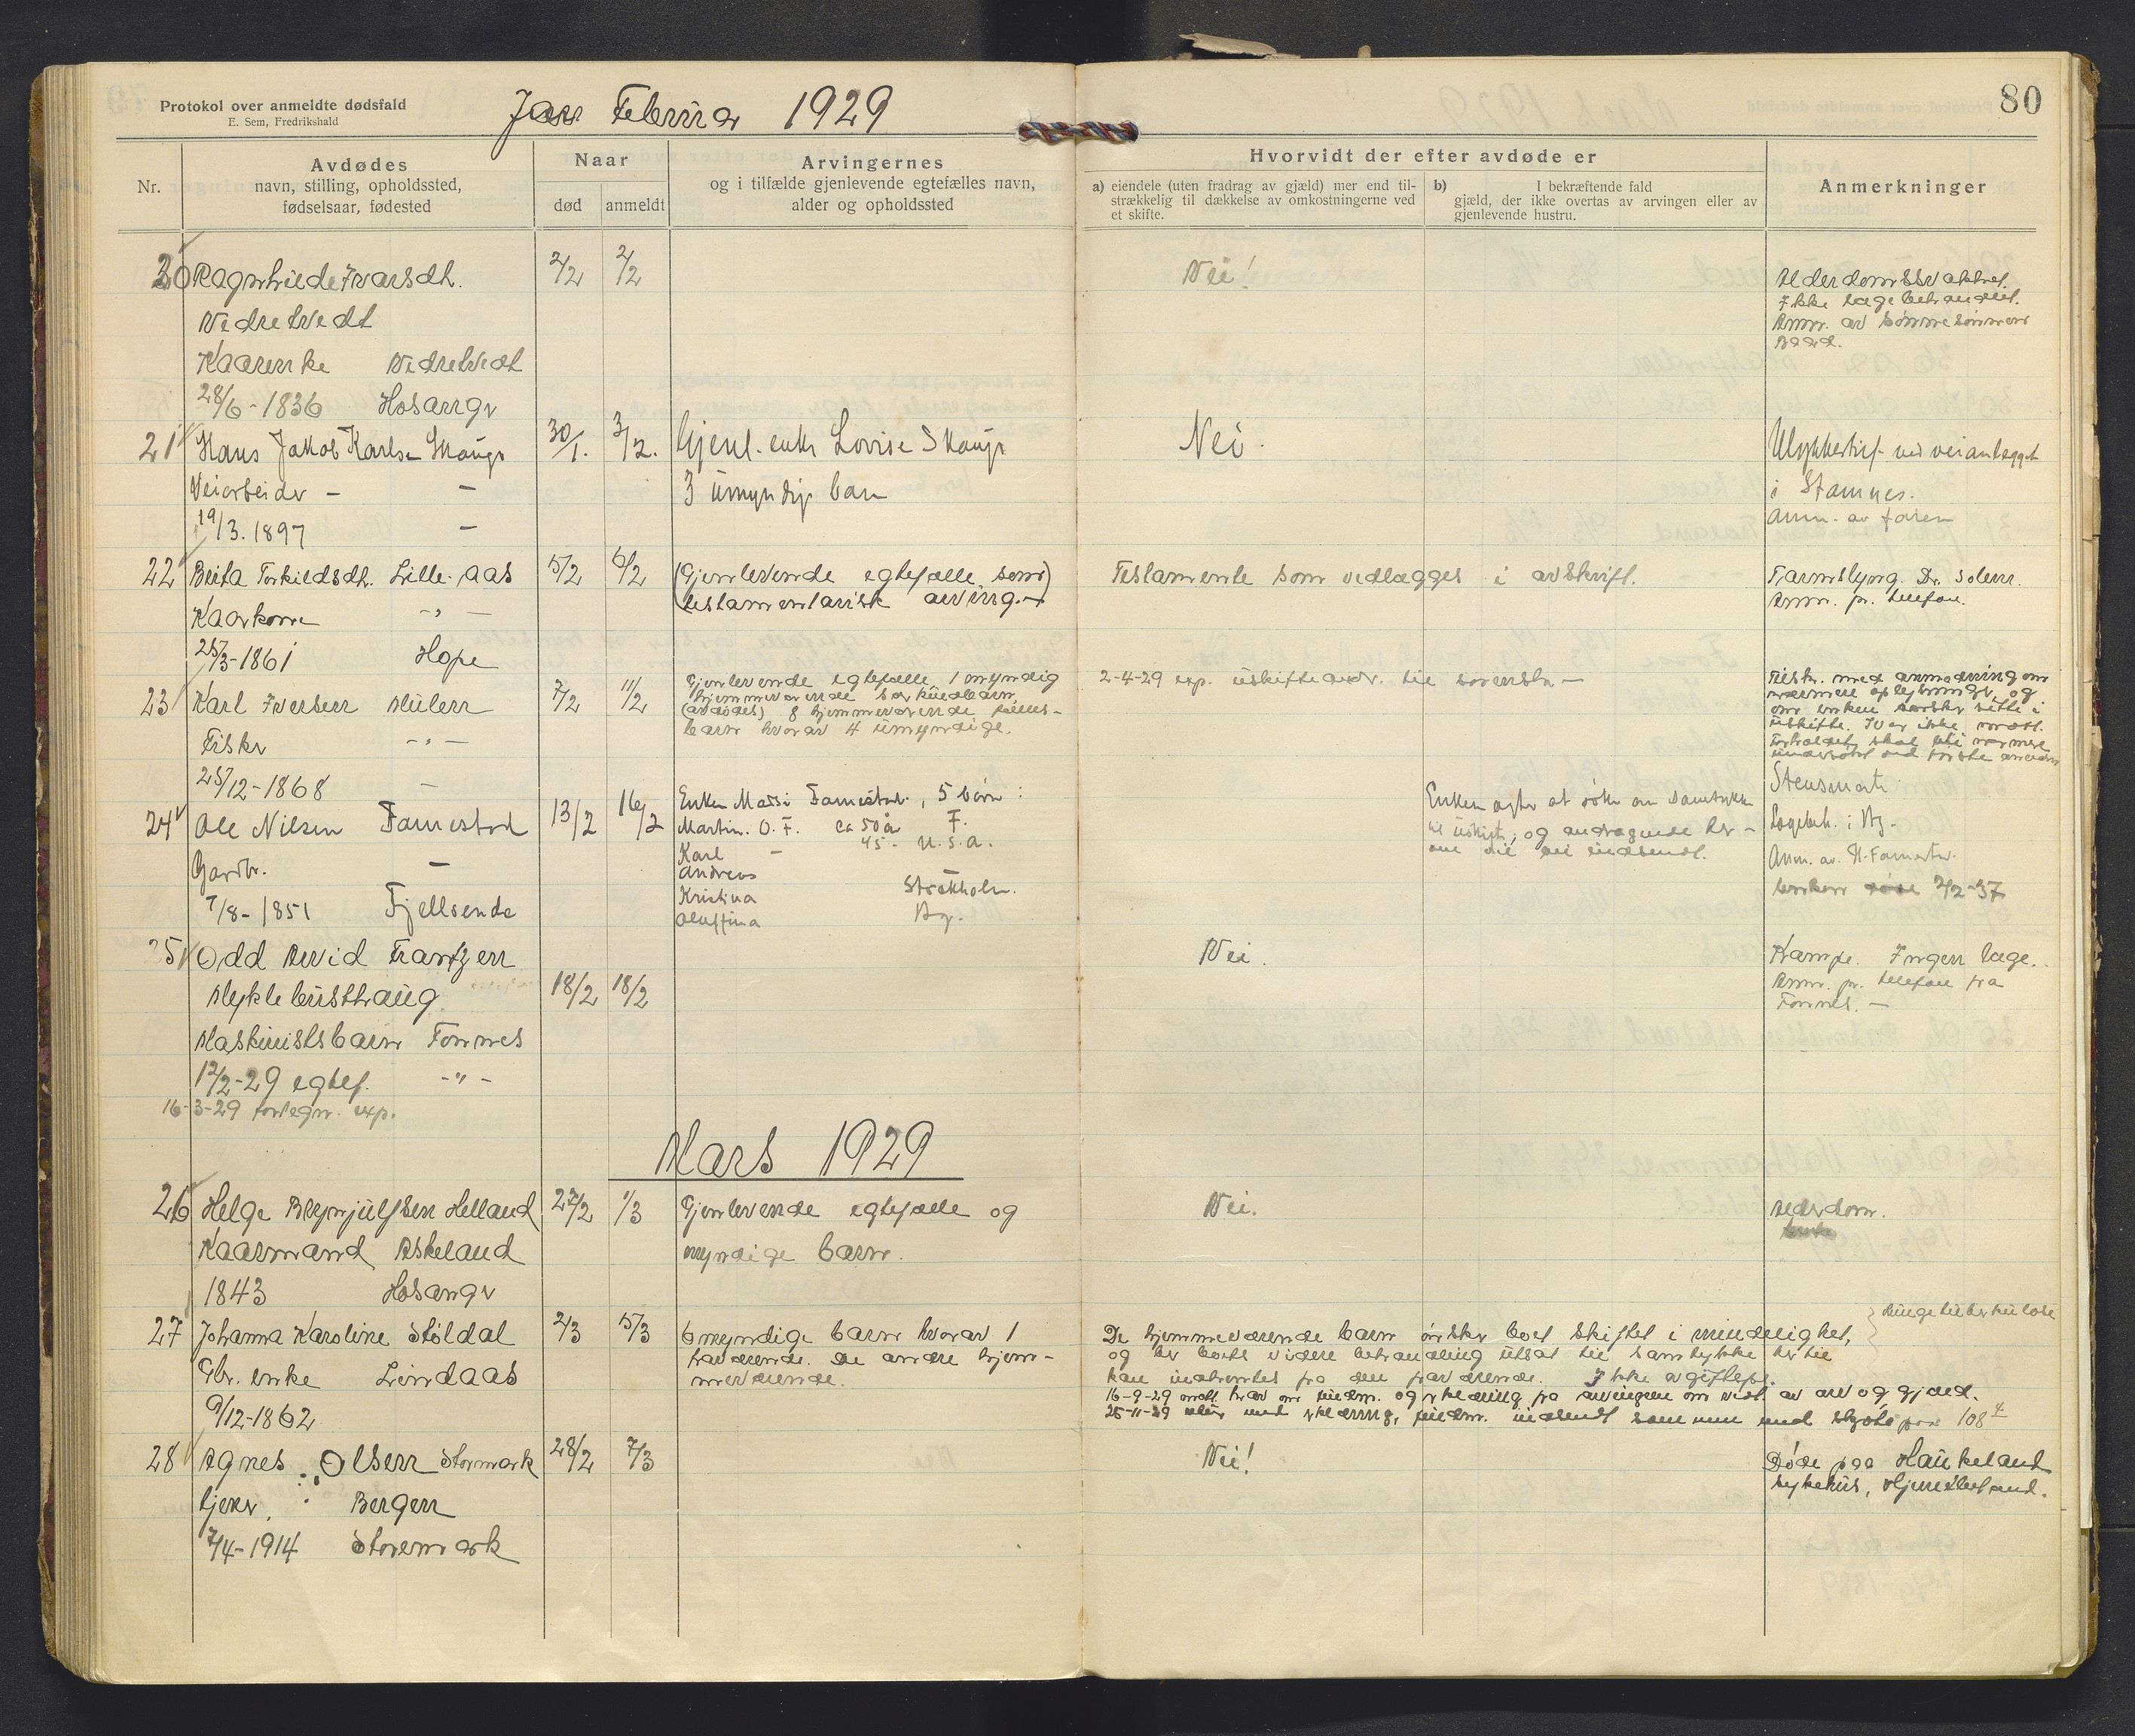 Protokol over anmeldte dødsfald
E. Sem, Fredrikshald
Februar 1929
80
Nr.
Avdødes
navn, stilling, opholdssted,
fødselsaar, fødested
Naar
død
anmeldt
Arvingernes
og i tilfælde gjenlevende egtefælles navn,
alder og opholdssted
Hvorvidt der efter avdøde er
a) eiendele (uten fradrag av gjæld) mer end til-
strækkelig til dækkelse av omkostningerne ved
et skifte.
b) I bekræftende fald
gjæld, der ikke overtas av arvingen eller av
gjenlevende hustru.
Anmerkninger
20 Ragnhilde Ivarsdt. 2/2 2/2 Nei! Alderdomssvakhet.
Vedretvedt Ikke lægebehandlet.
Kaarenke Vedretvedt Anm. av sønnesønnen
28/6-1836 Hosanger
21 Hans Jakob Karlsen Skauge 30/1. 3/2. Gjenl. enke Lovise Skauge Nei. Ulykkestilf. ved veianlægget
Veiarbeider - - 3 umyndige barn i Stamnes.
19/3.1897 - Anm. av faren
22 Brita Torkildsdt. Lille-Aas 5/2 6/2 (Gjenlevende egtefælle som) Testamente som vedlægges i avskrift. Tarmslyng. Dr. Solem.
Kaarkone -"- (testamentarisk arving.-) Anm. pr. telefon.
25/3-1861 Hope
23 Karl Iversen Mulen 7/2 11/2 Gjenlevende egtefælle, 1 myndig
hjemmeværende særkuldbarn,
(avdødes) 8 hjemmeværende fælles-
barn hvorav 4 umyndige.
2-4-29 exp. uskifteandr. til sorenskr.-
Tilskr. med anmodning om
nærmere oplysninger, og
om enken ønsker sitte i
uskifte. Var ikke
Fisker -"-
25/12-1868 -
24 Ole Nilsen Fammestad 13/2 16/2 Enken Marsi Fammestad, 5 børn:
Martin O. F. ca 50 år F.
Karl - 45 - U.S.A.
Andreas
Kristina Stockholm.
Oluffina
Enken agter at søke om samtykke
til uskifte, og andragende her-
om vil bli indsendt.
Lægebeh. i
Anm. av N. Fammestad.
enken død 2/2-37
Gardbr. -
7/8-1851 Fjellsende
25 Odd Arvid Frantzen Nei. Krampe. Ingen læge.
Myklebusthaug 18/2 18/2 Anm. pr. telefon fra
Maskinistsbarn Fonnes Fonnes.-
12/2-29 egtef. -"-
16-3-29 fortegn. exp.
Mars 1929
26 Helge Brynjulfsen Helland 27/2 1/3 Gjenlevende egtefælle og Nei. Alderdom.
Kaarmand Askeland myndige barn.
1843 Hosanger
27 Johanna Karoline Støldal 2/3 5/3 6 myndige barn hvorav 1 Lungetuberkulose
Gbr. enke Lindaas fraværende. De andre hjem-
9/12-1862 meværende.
De hjemmeværende barn ønsker boet skiftet i mindelighet,
og ber boets videre behandling utsat til samtykke hertil
kan indhentes fra den fraværende. Ikke avgiftspl.
16-9-29 mott. krav om findm. og erklæring fra arvingene om vedt. av arv og gjæld.
25-11-29 med erklæring, findm. indsendt sammen med skjøte paa 108
28 Agnes Olsen Stormark 28/2 7/3 Nei! Døde paa Haukeland
tjener, Bergen sykehus,
7/4-1914 Storemark